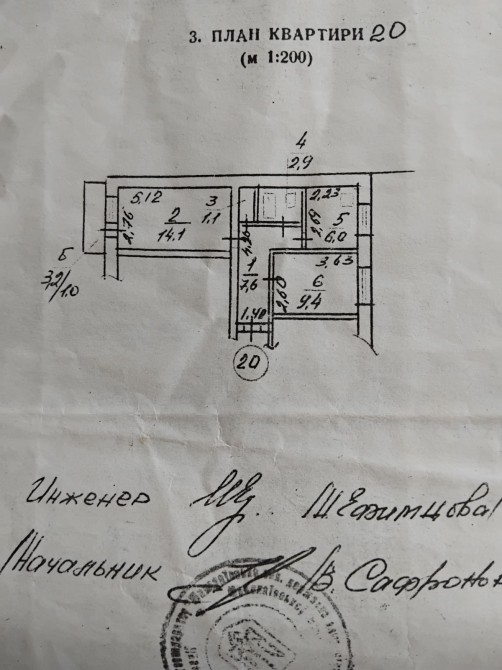 3. ПЛАН КВАРТИРИ 20
(м 1:200)
4
2,9
5,12
3
1,1
2,23
2
14,1
2,76
2,69
5
6,0
Б
3,2/1,0
4,20
1
7,6
3,63
6
9,4
2,60
1,40
20
Инженер
Ш. Ефимцова
Начальник
В Сафронь